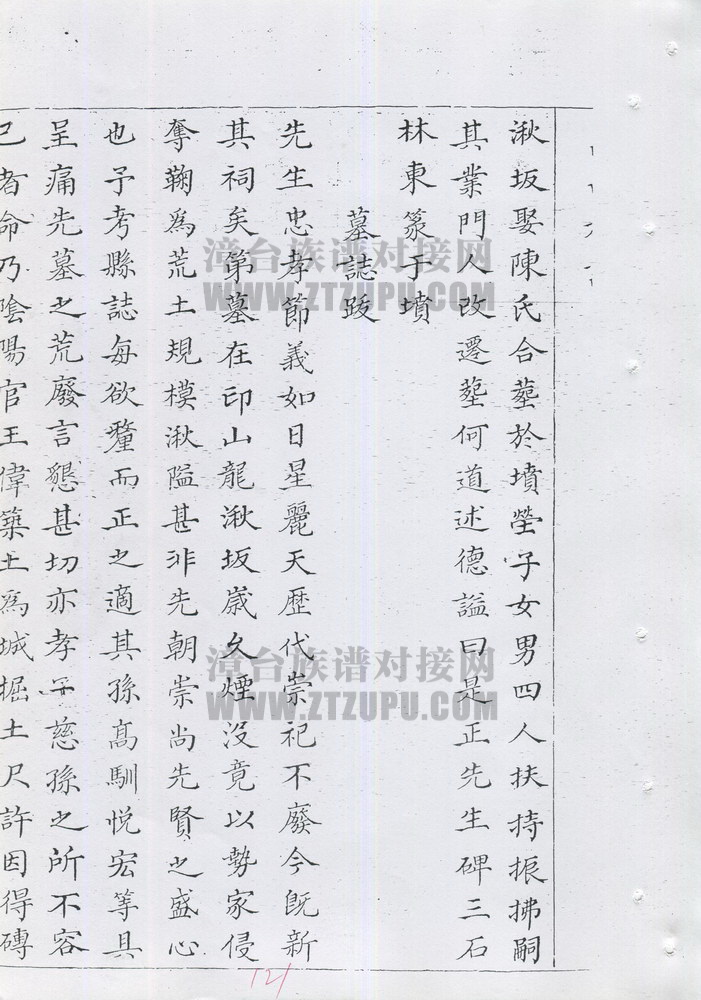 湫坂娶陳氏合塟於墳塋子女男四人扶持振拂嗣
其業門人改遷塟何道述德謚曰是正先生碑三石
林東篆于墳
墓誌跋
先生忠孝節義如日星麗天歷代崇祀不廢今既新
其祠矣第墓在印山龍湫坂歲久煙没竟以勢家侵
奪鞠為荒土規模湫隘甚非先朝崇尚先賢之盛心
也予考縣誌每欲釐而正之適其孫高馴悅宏等具
呈痛先墓之荒廢言懇甚切亦孝子慈孫之所不容
已者命乃陰陽官王偉築土為城掘土尺許因得磚
漳台族谱对接网
WWW.ZTZUPU.COM
漳台族谱对接网
WWW.ZTZUPU.COM
121